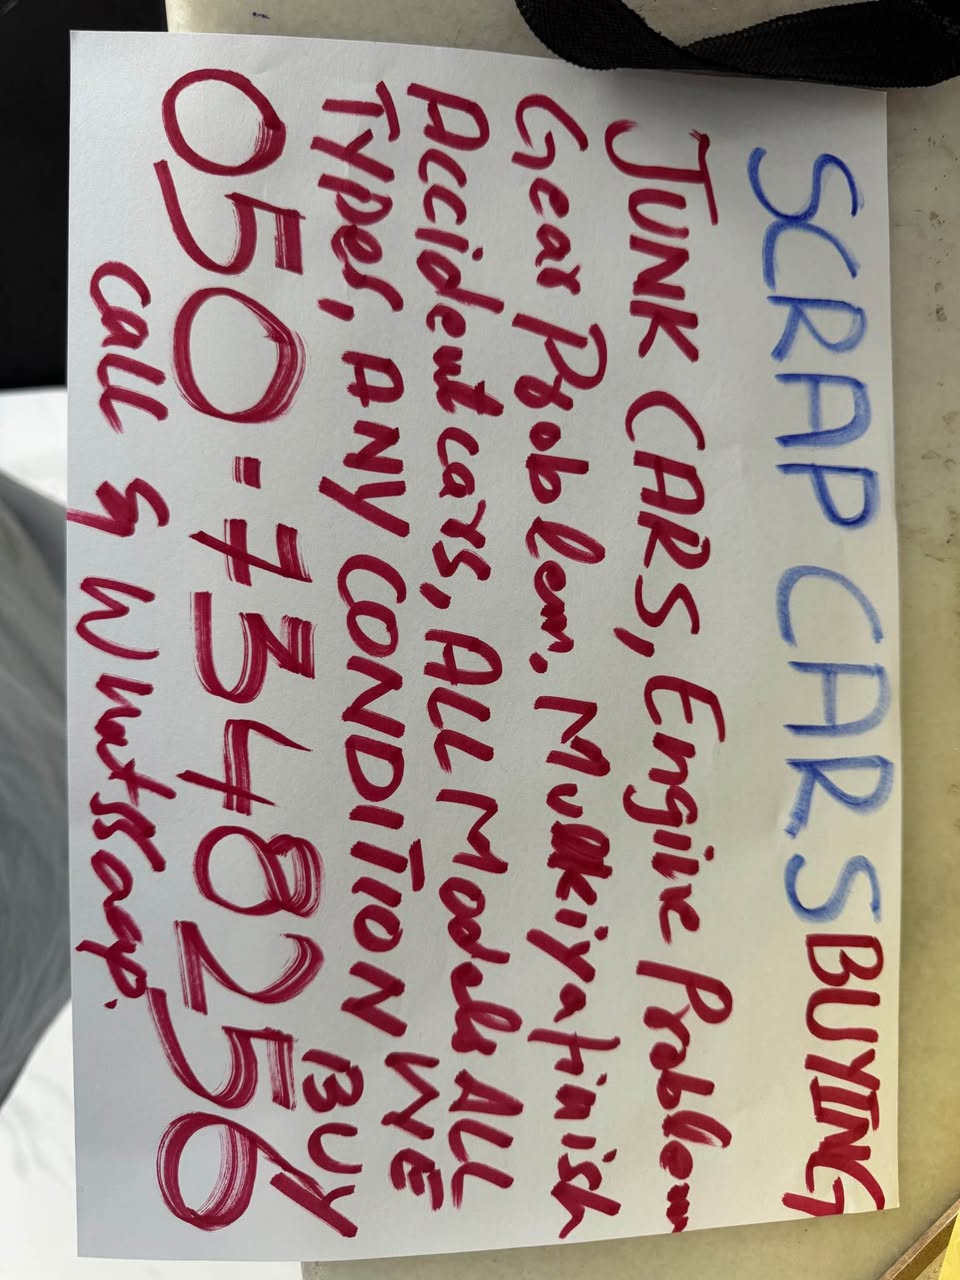 SCRAP CARS BUYING
JUNK CARS, Engine Problem
Gear Problem. Mulkiyafinish
Accident cars, ALL Models ALL
Types, ANY CONDITION WE BUY
050-7348256
call & Whatssapp.